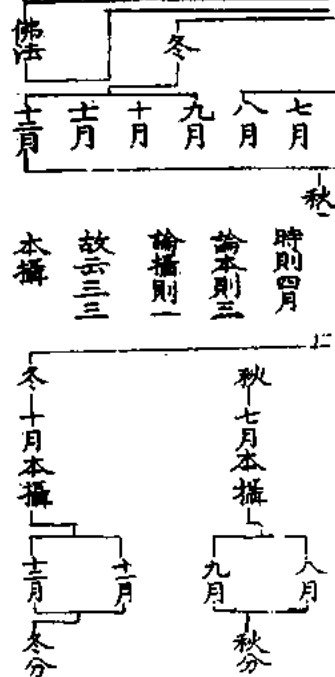 冬
佛法
七月
八月
九月
十月
十一月
十二月
秋
時則四月
論本則三
論攝則一
故云三三
本攝
秋
七月本攝
八月
九月
秋分
冬
十月本攝
十一月
十二月
冬分